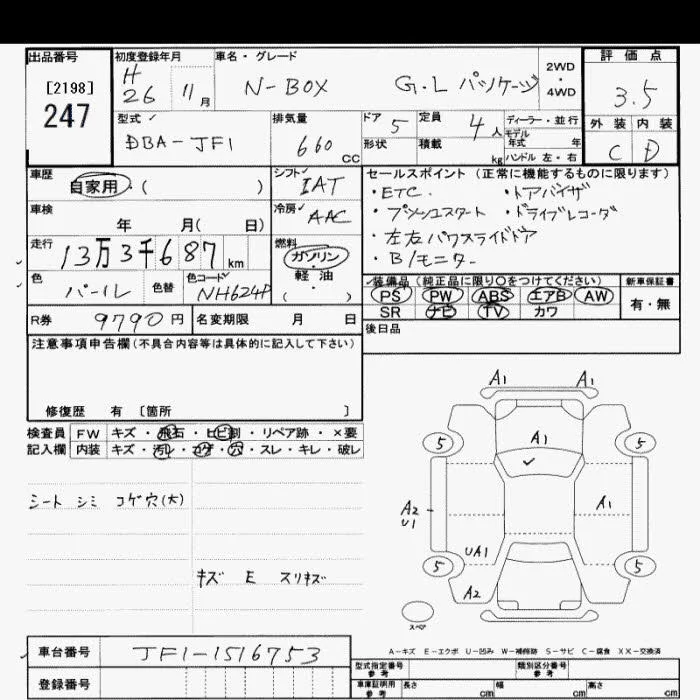 出品番号 初度登録年月 車名・グレード 2WD・4WD 評価点
[2198] H26 11月 N-BOX G.L パッケージ 3.5
247
型式 DBA-JF1 排気量 660 CC ドア 5 定員 4人 ディーラー・並行 外装 内装
形状 積載 kg モデル年式 年 ハンドル 左・右 C D
車歴 自家用・( ) シフト IAT セールスポイント (正常に機能するものに限ります)
・ETC. ・ドアバイザ
車検 年 月( 日) 冷房 AAC ・プッシュスタート ・ドライブレコーダ
走行 13万3千687 km 燃料 ガソリン・軽油・( ) ・左右パワスライドドア
・B/モニター
色 パール 色替 色コード NH624P 装備品 (純正品に限り○をつけてください) 新車保証書
PS PW ABS エアB AW 有・無
SR ナビ TV カワ
R券 9790円 名変期限 月 日 後日品
注意事項申告欄 (不具合内容等は具体的に記入して下さい)
修復歴 有 [箇所 ]
検査員 FW キズ・飛石・ヒビ割・リペア跡・×要
記入欄 内装 キズ・汚レ・コゲ・穴・スレ・キレ・破レ
シート シミ コゲ穴(大)
キズ E スリキズ
A1 A1
A1
5 5
A2 A1
U1
UA1
5 5
A2
スペア
A-キズ E-エクボ U-凹み W-補修跡 S-サビ C-腐食 XX-交換済
車台番号 JF1-1516753
型式指定番号 参考 類別区分番号 参考
登録番号 車庫証明用 参考 長さ cm 幅 cm 高さ cm